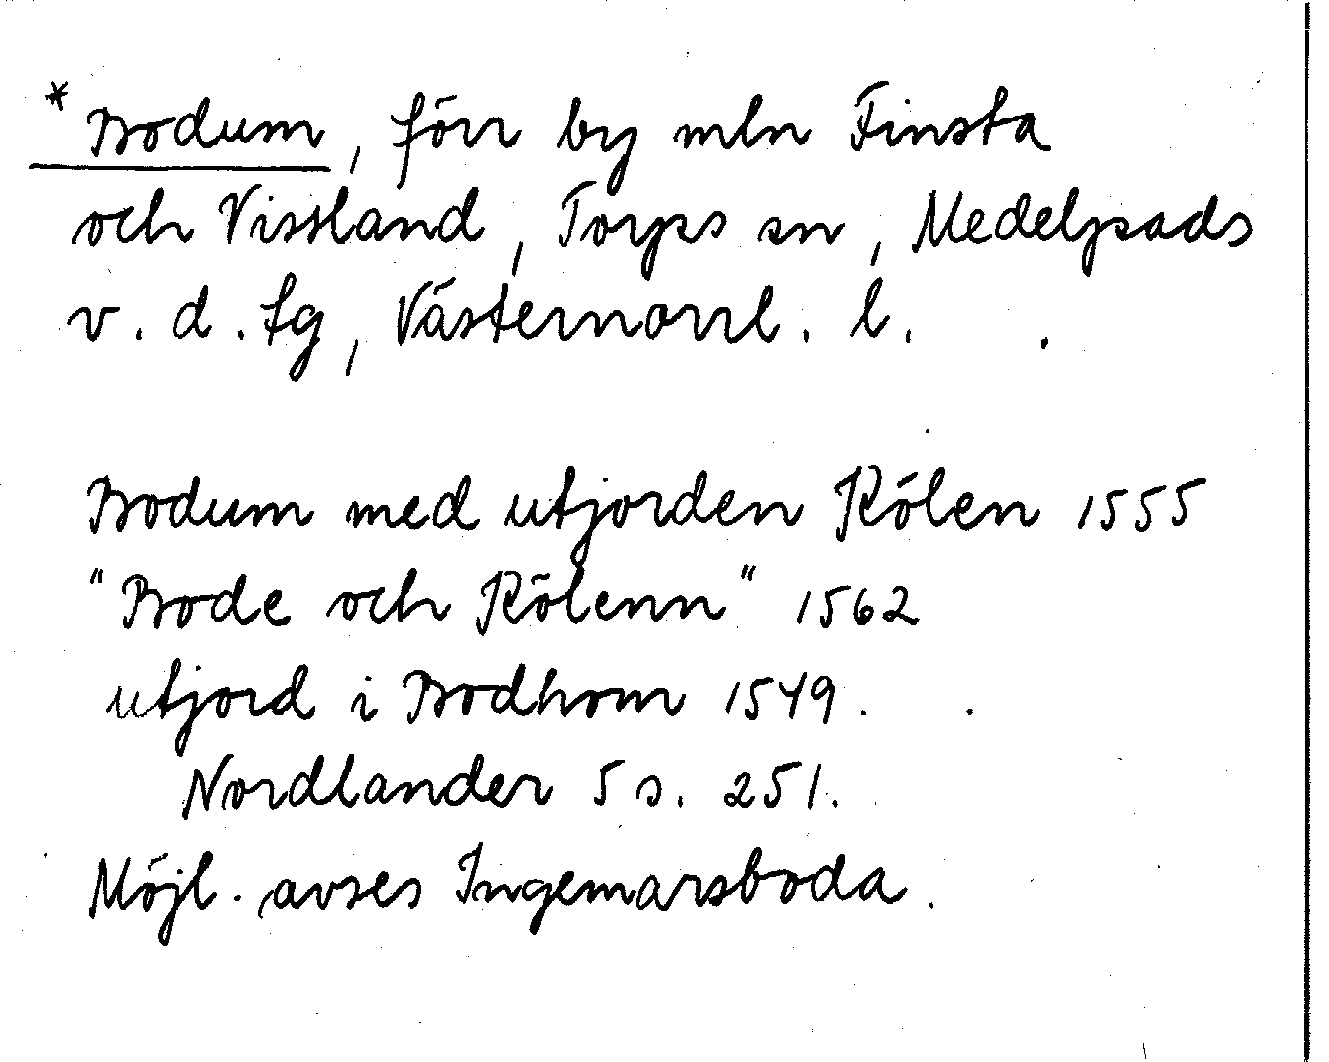 * Bodum, förr by mln Finsta
och Vissland, Torps sn, Medelpads
v. d. tg, Västernorrl. l.
Bodum med utjorden Kölen 1555
"Bode och Kölenn" 1562
utjord i Bodhom 1549.
Nordlander 5 s. 251.
Möjl. avses Ingemarsboda.